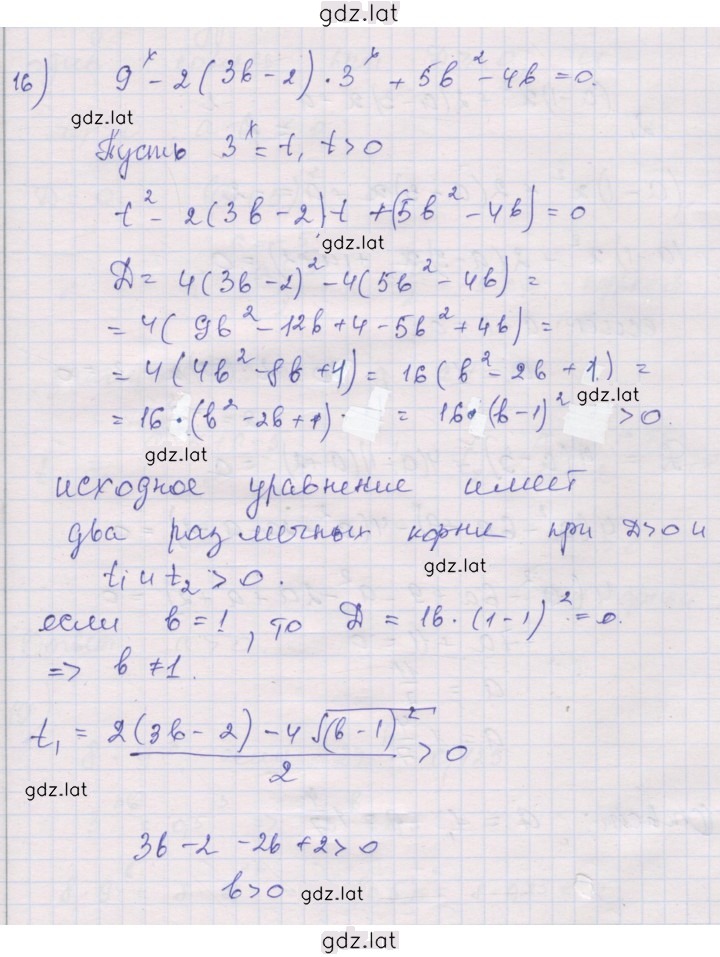 gdz.lat
16) 9^x - 2(3b - 2) · 3^x + 5b^2 - 4b = 0.
gdz.lat
Пусть 3^x = t, t > 0
t^2 - 2(3b - 2)t + (5b^2 - 4b) = 0
gdz.lat
D = 4(3b - 2)^2 - 4(5b^2 - 4b) =
= 4(9b^2 - 12b + 4 - 5b^2 + 4b) =
= 4(4b^2 - 8b + 4) = 16(b^2 - 2b + 1) =
gdz.lat
= 16 · (b^2 - 2b + 1) = 16 · (b - 1)^2 > 0.
gdz.lat
исходное уравнение имеет
два различных корня при D > 0 и
gdz.lat
t1 и t2 > 0.
если b = 1, то D = 16 · (1 - 1)^2 = 0.
=> b ≠ 1.
t1 = (2(3b - 2) - 4√(b - 1)^2) / 2 > 0
gdz.lat
3b - 2 - 2b + 2 > 0
b > 0
gdz.lat
gdz.lat